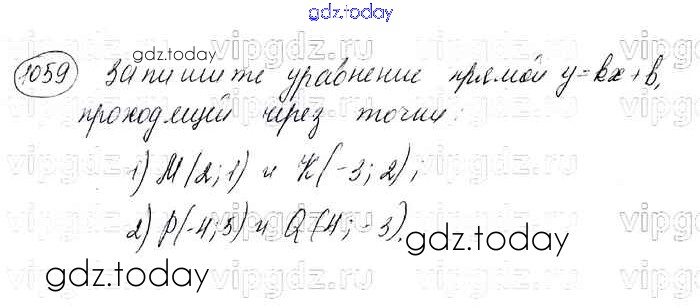 gdz.today
1059 Запишите уравнение прямой y=kx+b,
проходящей через точки:
1) M(2; 1) и K(-3; 2);
2) P(-4; 5) и Q(4; -3).
gdz.today
gdz.today
gdz.today
gdz.today